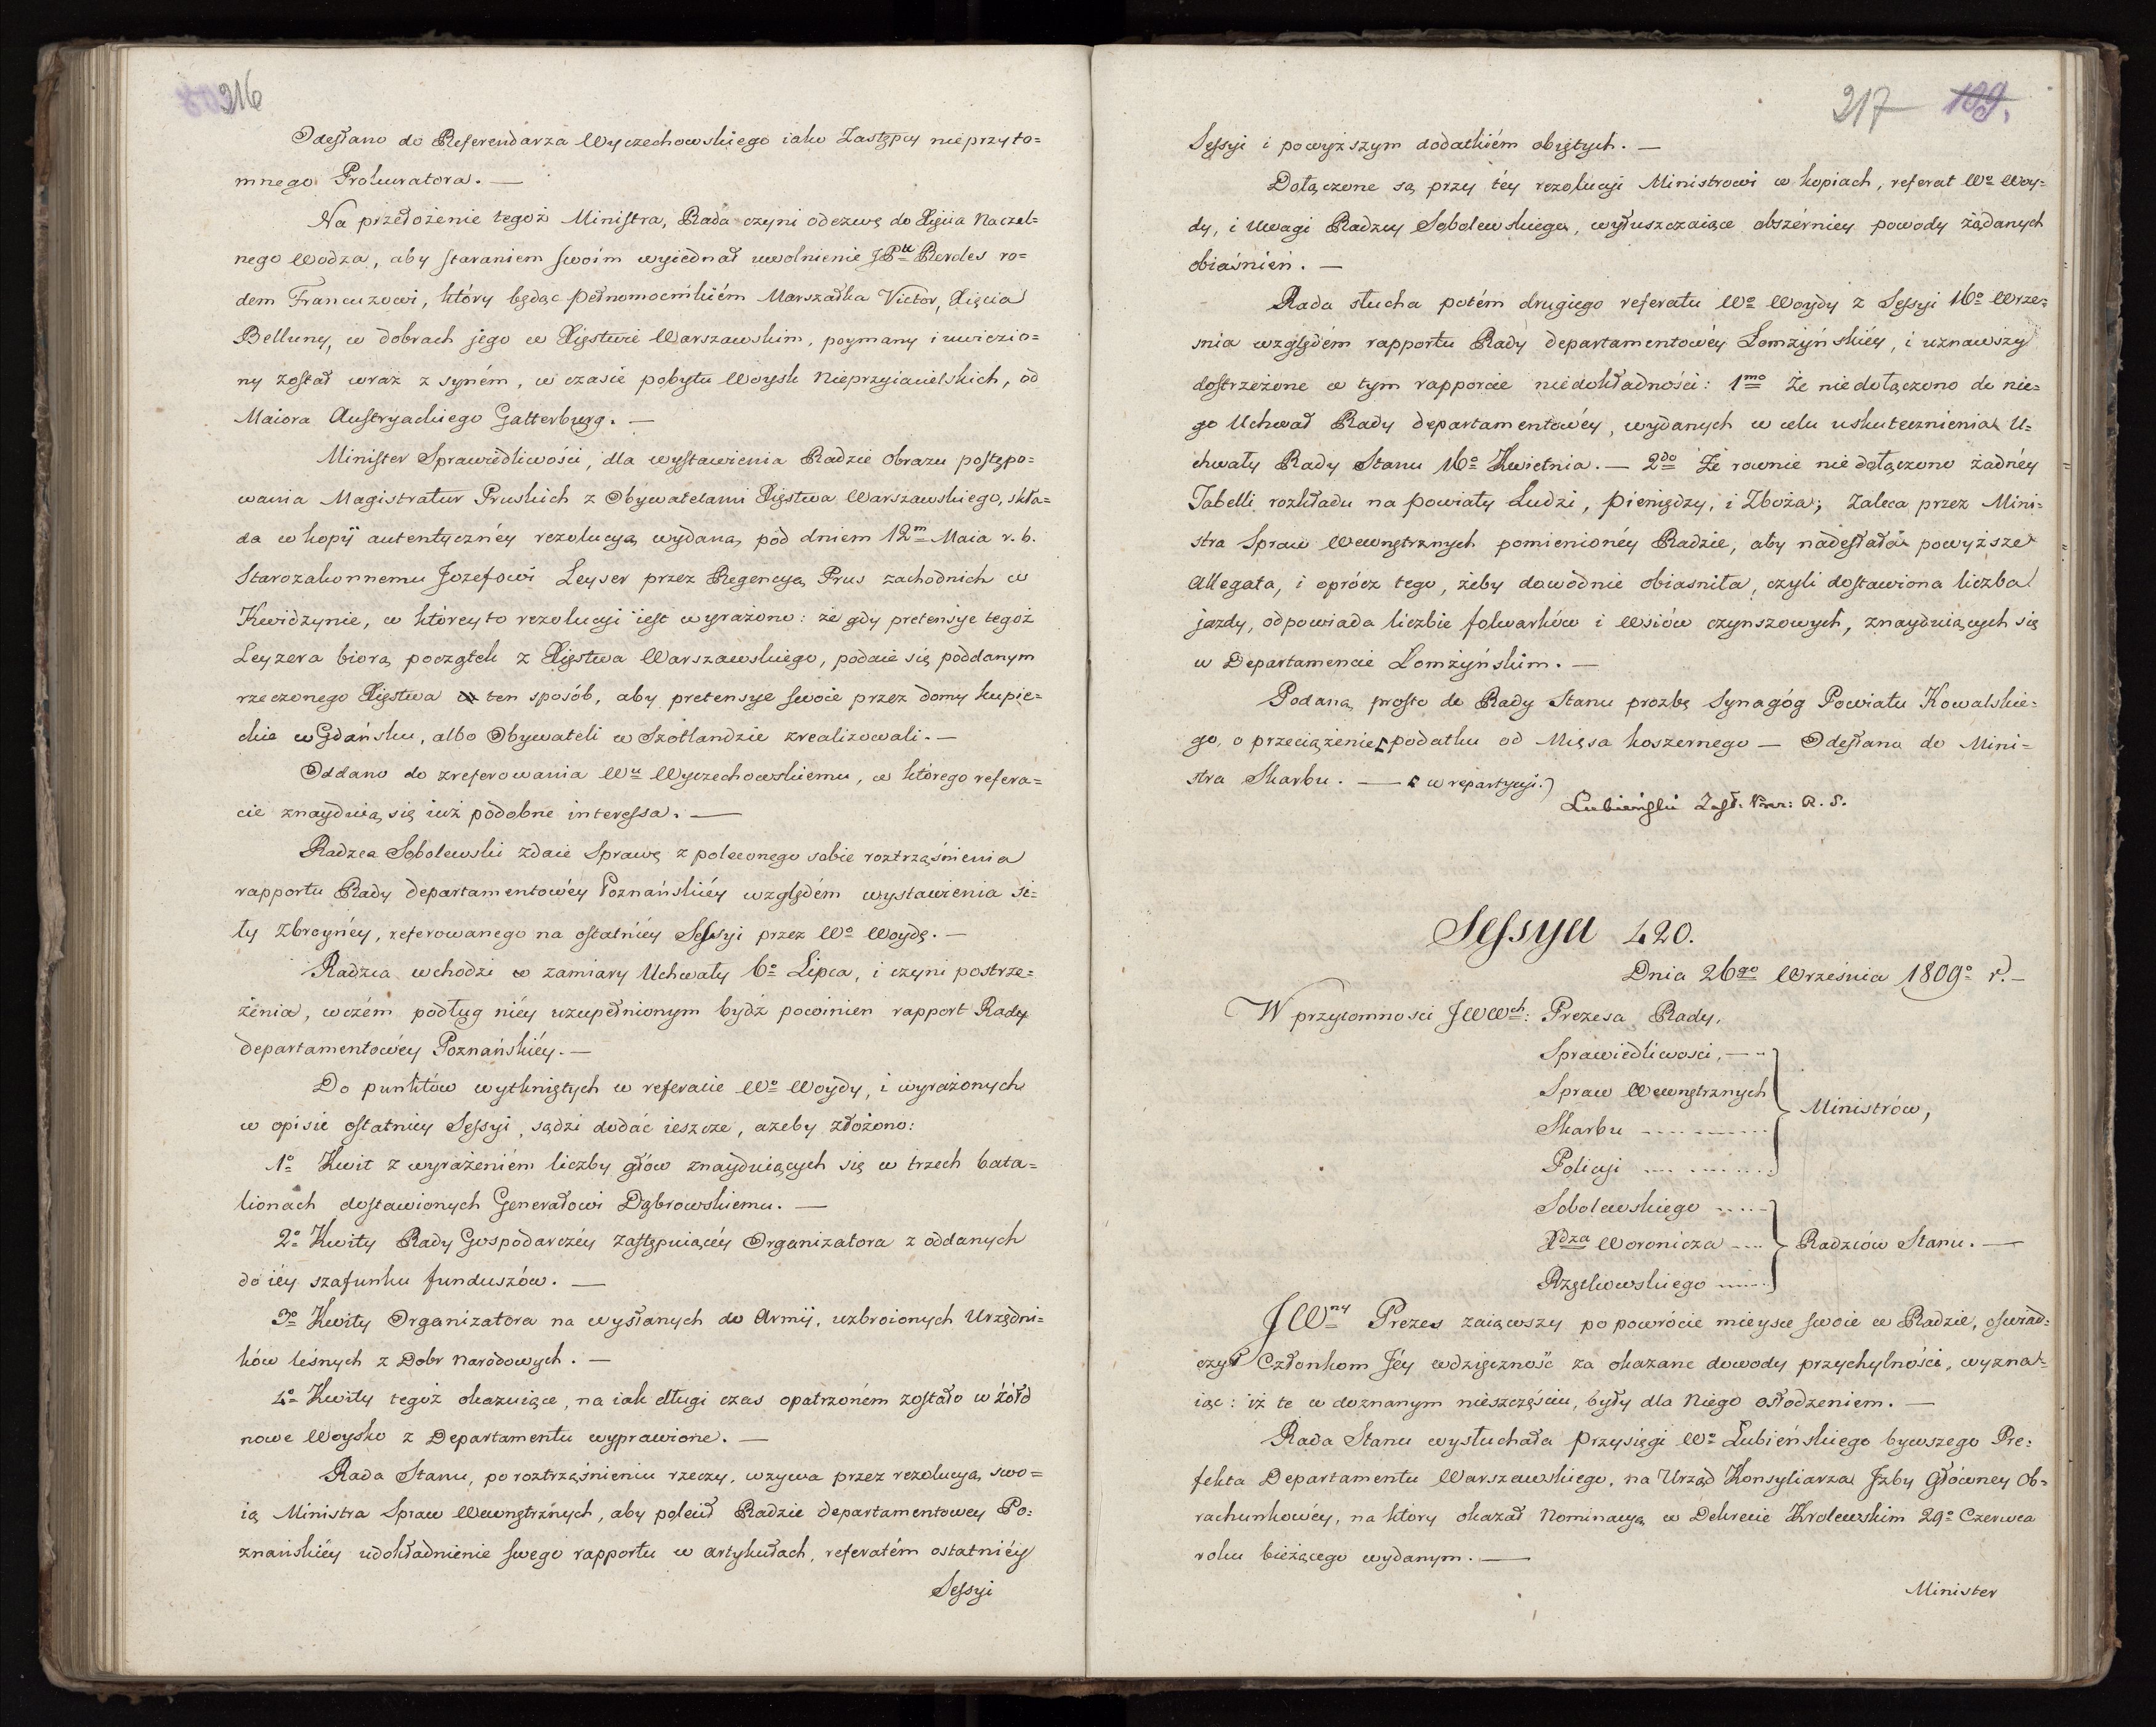 216
Odesłano do Referendarza Wyczechowskiego iako Zastępcy nieprzyto=
mnego Prokuratora. —
Na przełożenie tegoż Ministra, Rada czyni odezwę do Xięcia Naczel=
nego Wodza, aby staraniem swoim wyiednał uwolnienie JP
dem Francuzowi, który będąc pełnomocnikiém Marszałka Victor, Xięcia
Belluny, w dobrach jego w Xięstwie Warszawskim, poymany i uwięzio=
ny został wraz z syném, w czasie pobytu Woysk Nieprzyiacielskich, od
Maiora Austryackiego Gatterburg. —
Minister Sprawiedliwości, dla wystawienia Radzie obrazu postępo=
wania Magistratur Pruskich z Obywatelami Xięstwa Warszawskiego, skła=
da w kopij autentycznéy rezolucyą wydaną pod dniem 12m Maia r. b.
Starozakonnemu Jozefowi Leyser przez Regencyą Prus zachodnich w
Kwidzynie, w którey to rezolucyi iest wyrażono: że gdy pretensye tegoż
Leyzera biorą początek z Xięstwa Warszawskiego, podaie się poddanym
rzeczonego Xięstwa ten sposób, aby pretensye swoie przez domy kupie=
ckie w Gdańsku, albo Obywateli w Szotlandzie zrealizowali. —
Oddano do zreferowania Wu Wyczechowskiemu, w którego refera=
cie znayduią się iuż podobne interessa. —
Radzca Sobolewski zdaie Sprawę z poleconego sobie roztrząśnienia
rapportu Rady departamentowéy Poznańskiéy względém wystawienia si=
ły zbroynéy, referowanego na ostatniéy Sessyi przez Wo Woydę. —
Radzca wchodzi w zamiary Uchwały 6o Lipca, i czyni postrze=
żenia, wczém podług niéy uzupełnionym bydź powinien rapport Rady
departamentowéy Poznańskiéy. —
Do punktów wytkniętych w referacie Wo Woydy, i wyrażonych
w opisie ostatniey Sessyi, sądzi dodać ieszcze, ażeby złożono:
1o Kwit z wyrażeniém liczby głów znayduiących się w trzech bata=
lionach dostawionych Generałowi Dąbrowskiemu. —
2o Kwity Rady Gospodarczéy zastępuiącéy Organizatora z oddanych
do iéy szafunku funduszów. —
3o Kwity Organizatora na wysłanych do Armij, uzbroionych Urzędni=
ków leśnych z Dobr Narodowych. —
4o Kwity tegoż okazuiące, na iak długi czas opatrzoném zostało w żołd
nowe Woysko z Departamentu wyprawione. —
Rada Stanu, po roztrząśnieniu rzeczy, wzywa przez rezolucyą swo=
ią Ministra Spraw Wewnętrznych, aby polecił Radzie departamentowey Po=
znańskiéy udokładnienie swego rapportu w artykułach, referatém ostatniéy
Sessyi
217 109.
Sessyi i powyższym dodatkiém obiętych. —
Dołączone są przy téy rezolucyi Ministrowi w kopiach, referat Wo Woy=
dy, i uwagi Radzcy Sobolewskiego, wyłuszczaiące obszérniey powody żądanych
obiaśnień. —
Rada słucha potém drugiego referatu Wo Woydy z Sessyi 16o Wrze=
snia względém rapportu Rady departamentowéy Lomżyńskiéy, i uznawszy
dostrzeżone w tym rapporcie niedokładności: 1mo Że niedołączono do nie=
go Uchwał Rady departamentowéy, wydanych w celu uskutecznienia U=
chwały Rady Stanu 16o Kwietnia. — 2do Że rownie nie dołączono żadnéy
Tabelli rozkładu na powiaty Ludzi, pieniędzy, i Zboża; Zaleca przez Mini=
stra Spraw Wewnętrznych pomienionéy Radzie, aby nadesłała powyższe
Allegata, i oprócz tego, żeby dowodnie obiasniła, czyli dostawiona liczba
jazdy, odpowiada liczbie folwarków i wsiów czynszowych, znayduiących się
w Departamencie Lomżyńskim. —
Podaną prosto do Rady Stanu prozbę Synagóg Powiatu Kowalskie=
go, o przeciążenie podatku od Mięsa koszernego — Odesłano do Mini=
stra Skarbu. — w repartycyi.)
Lubieński Zast: Prez: R. S.
Sessya 420.
Dnia 26go Września 1809o r. —
W przytomnosci JWWch: Prezesa Rady,
Sprawiedliwosci, —
Spraw Wewnętrznych
Skarbu ........
Policyi ........
Ministrów,
Sobolewskiego ....
Xdza Woronicza ....
Rzętkowskiego ....
Radzców Stanu. —
JWny Prezes zaiąwszy po powrócie mieysce swoie w Radzie, oswiad=
czył Członkom Jéy wdzięczność za okazane dowody przychylności, wyzna=
iąc: iż te w doznanym nieszczęściu, były dla Niego osłodzeniem. —
Rada Stanu wysłuchała przysięgi Wo Lubieńskiego bywszego Pre=
fekta Departamentu Warszawskiego, na Urząd Konsyliarza Jzby Główney Ob=
rachunkowéy, na ktory okazał Nominacyą w Dekrecie Krolewskim 29o Czerwca
roku bieżącego wydanym. —
Minister